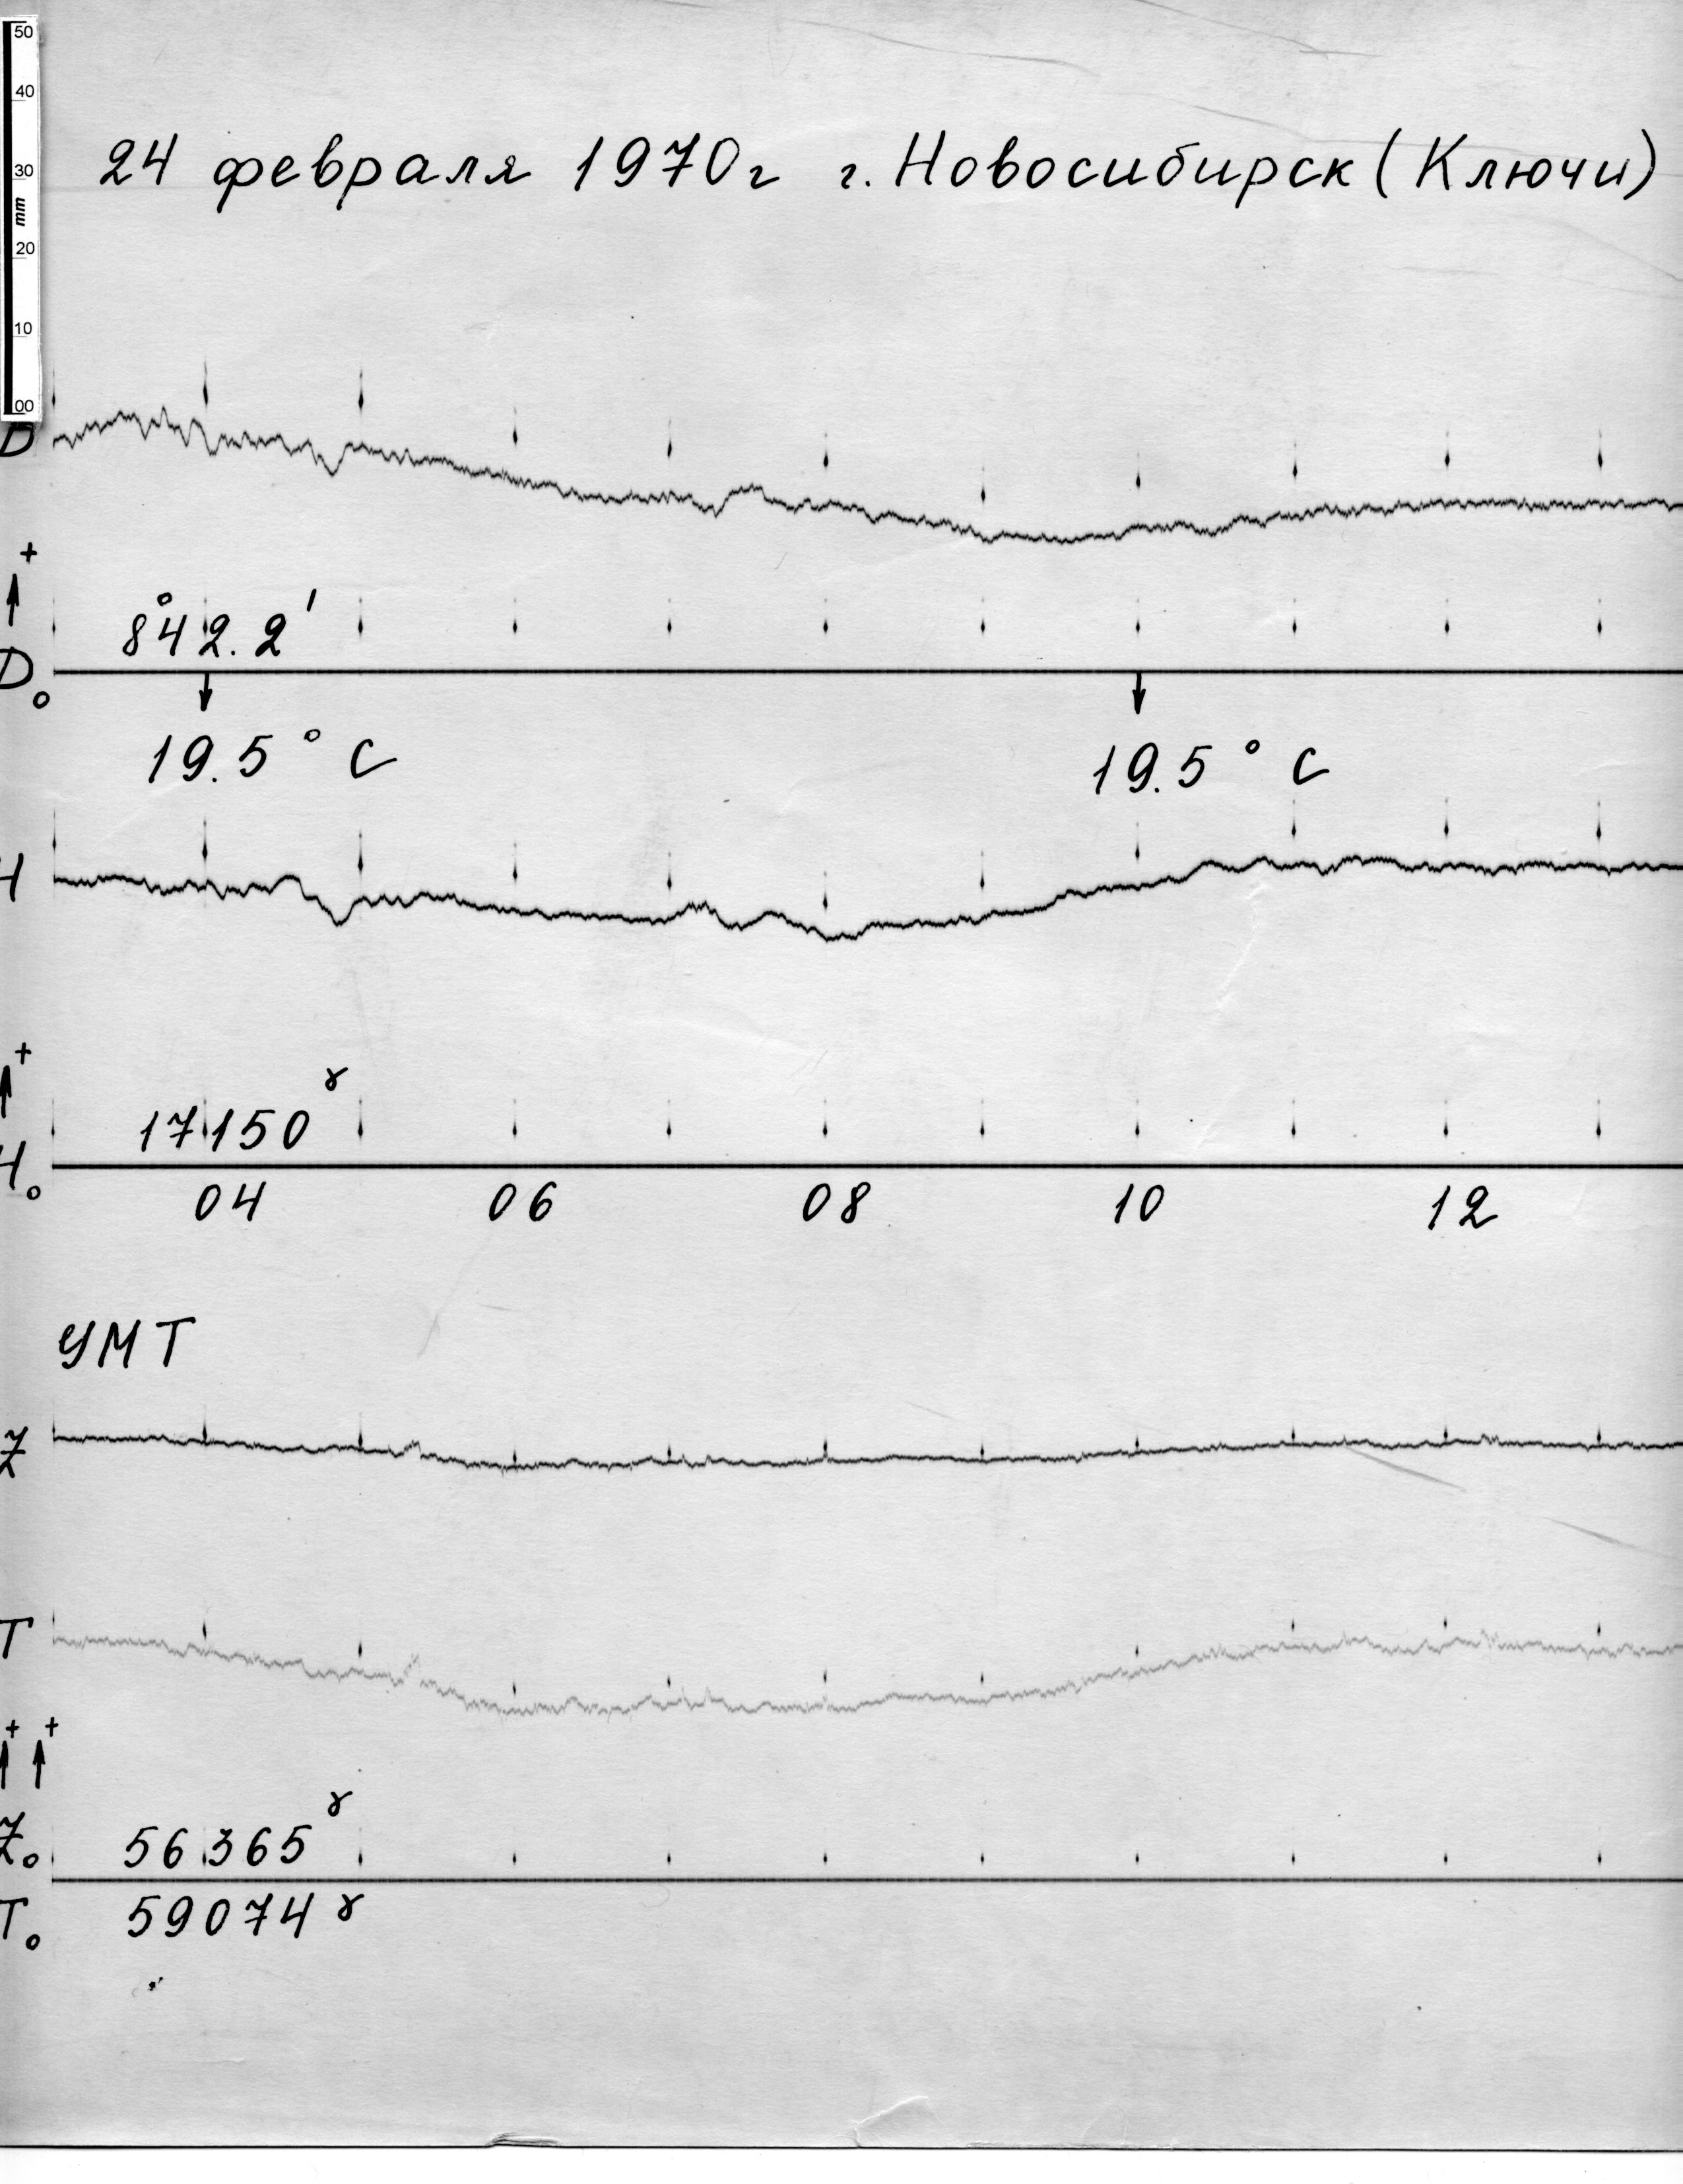 50
40
30
mm
20
10
00
24 февраля 1970г г. Новосибирск (Ключи)
D
+
8°42.2'
D₀
19.5° C 19.5° C
H
+
17150 γ
H₀
04 06 08 10 12
УМТ
Z
T
+ +
Z₀ 56365 γ
T₀ 59074 γ